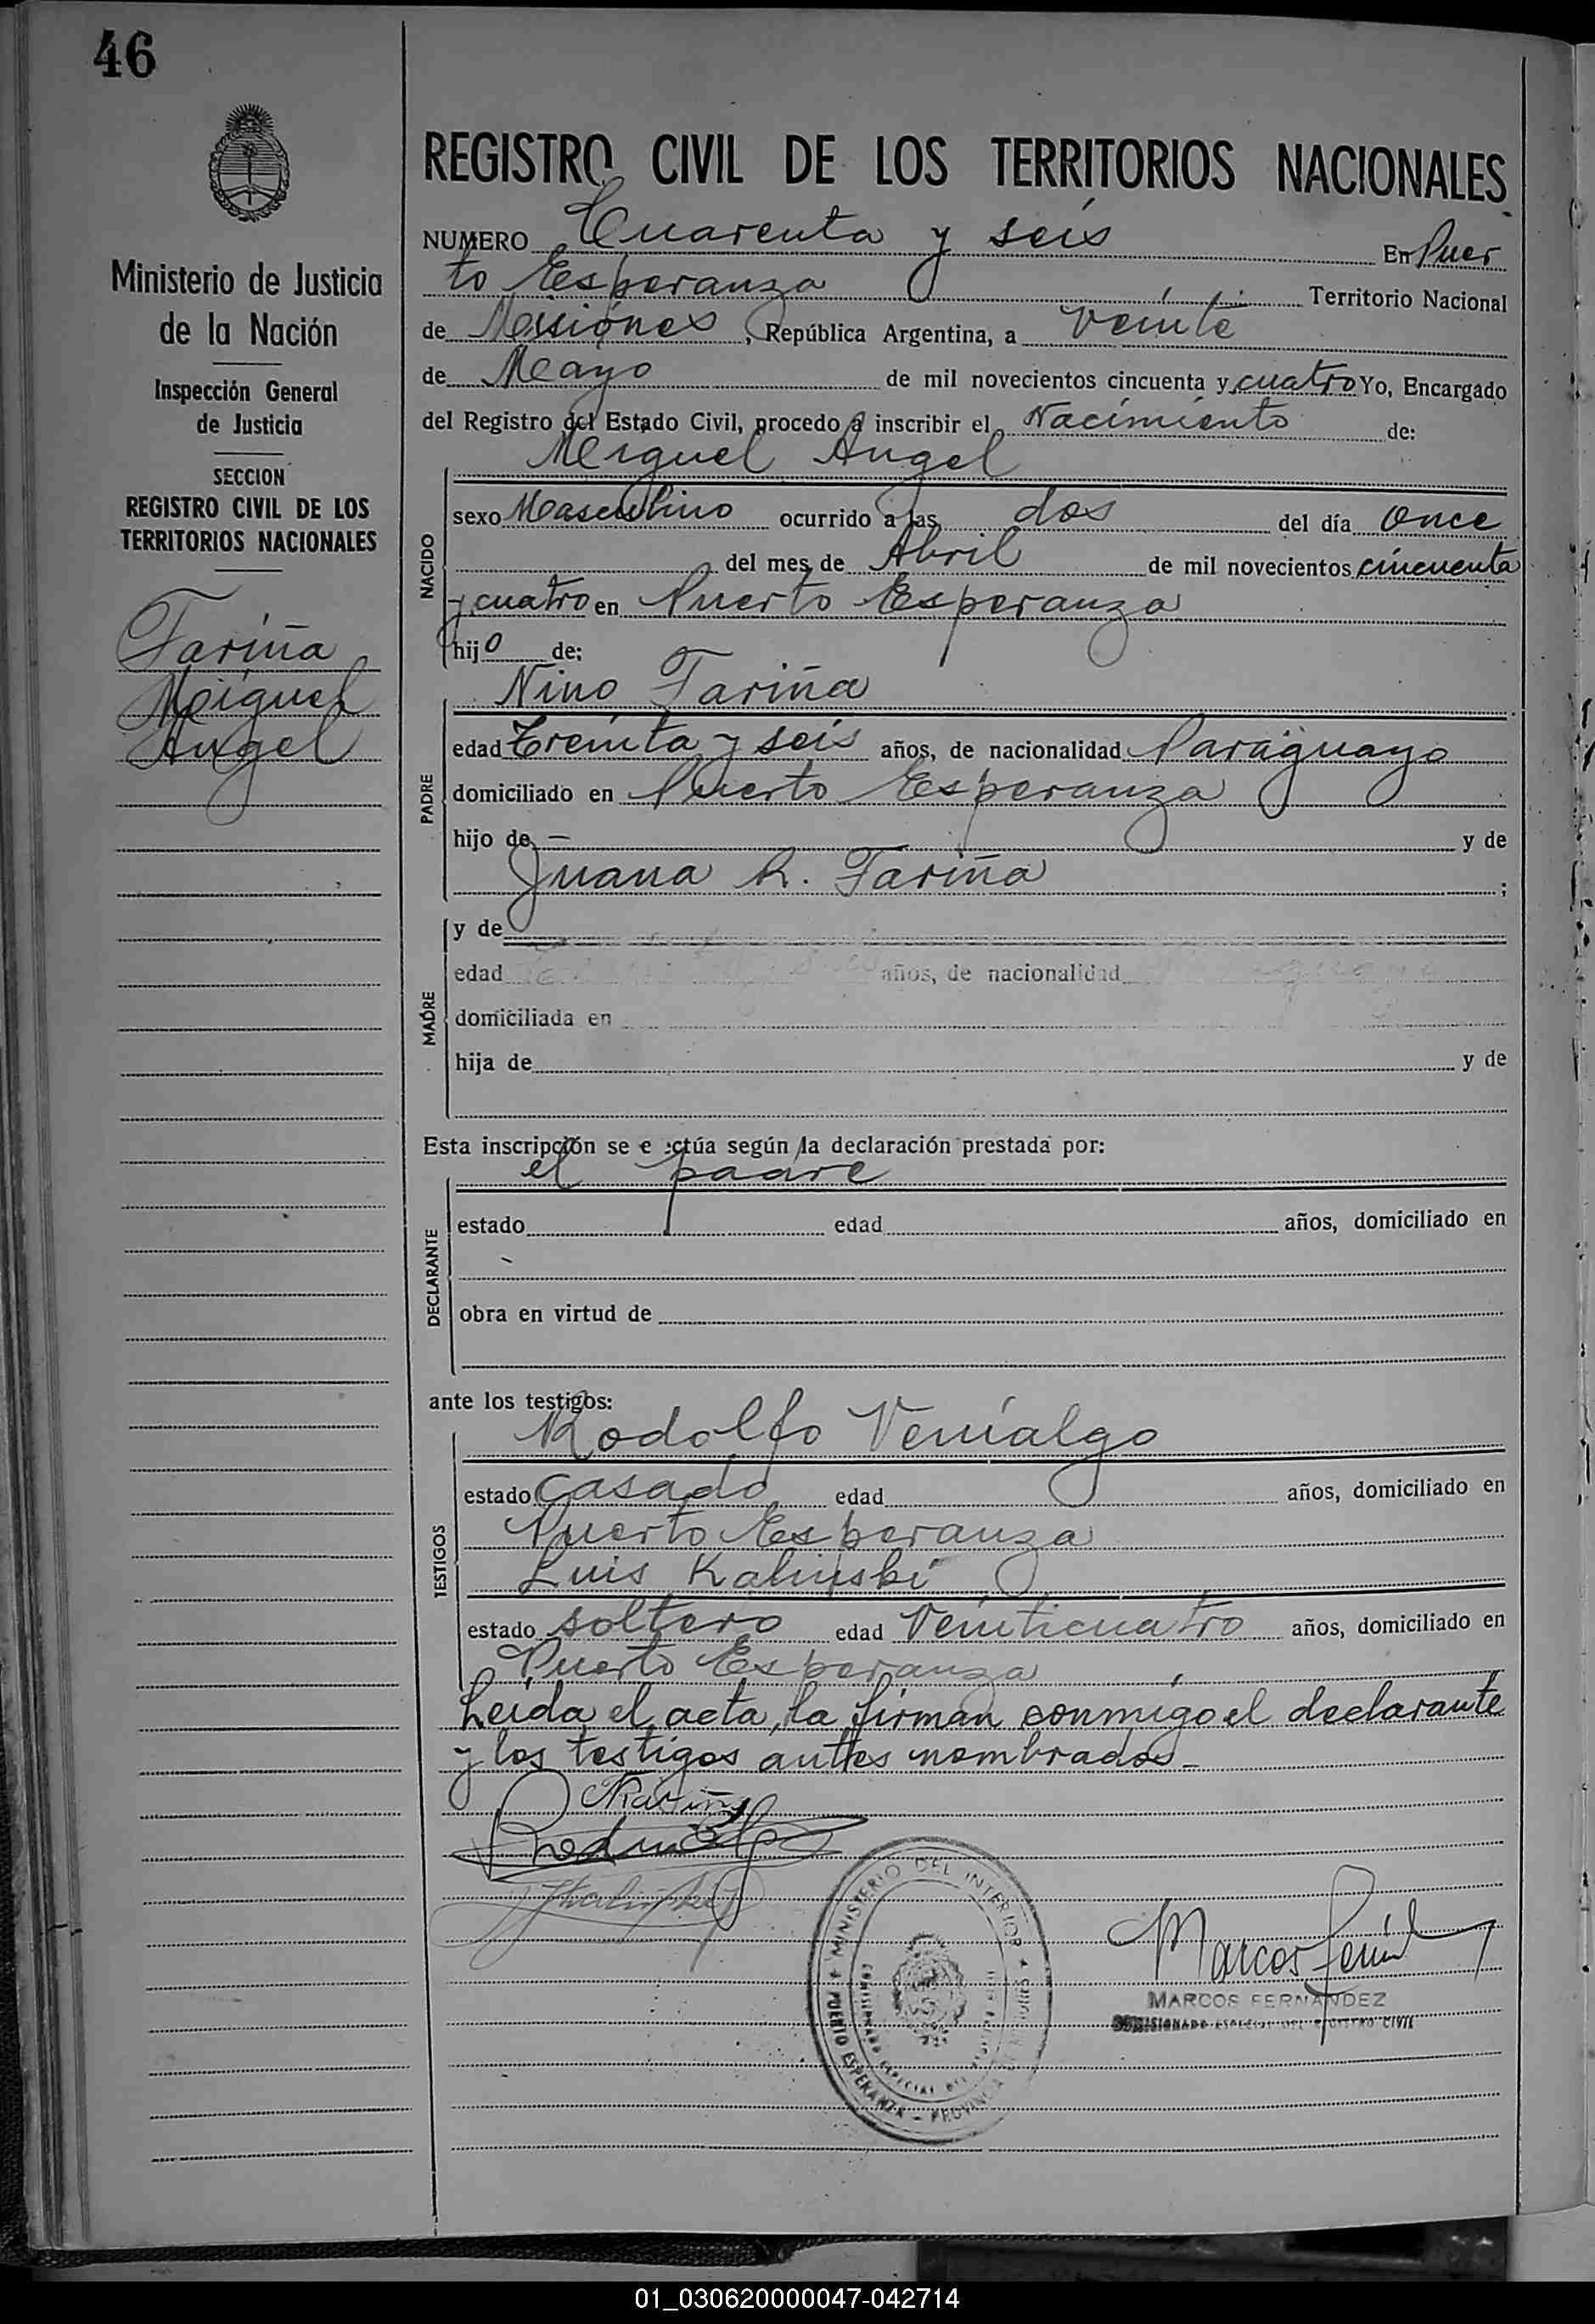 46
REGISTRO CIVIL DE LOS TERRITORIOS NACIONALES
Ministerio de Justicia
de la Nación
Inspección General
de Justicia
SECCION
REGISTRO CIVIL DE LOS
TERRITORIOS NACIONALES
Fariña
Miguel
Angel
NUMERO Cuarenta y seis En Puer
to Esperanza Territorio Nacional
de Misiones, República Argentina, a veinte
de Mayo de mil novecientos cincuenta y cuatro Yo, Encargado
del Registro del Estado Civil, procedo a inscribir el Nacimiento de:
Miguel Angel
NACIDO
sexo Masculino ocurrido a las dos del día once
del mes de Abril de mil novecientos cincuenta
y cuatro en Puerto Esperanza
hijo de:
Nino Fariña
PADRE
edad Treinta y seis años, de nacionalidad Paraguayo
domiciliado en Puerto Esperanza
hijo de — y de
Juana R. Fariña ;
MADRE
y de
edad años, de nacionalidad
domiciliada en
hija de y de
Esta inscripción se e ectúa según la declaración prestada por:
el padre
DECLARANTE
estado edad años, domiciliado en
obra en virtud de
ante los testigos:
Rodolfo Venialgo
TESTIGOS
estado casado edad años, domiciliado en
Puerto Esperanza
Luis Kalinski
estado soltero edad Veinticuatro años, domiciliado en
Puerto Esperanza
Leida el acta, la firman conmigo el declarante
y los testigos antes nombrados-
NFariña
MINISTERIO DEL INTERIOR
PUERTO ESPERANZA - PROVINCIA DE MISIONES
COMISIONADO ESPECIAL DEL
Marcos Fernández
MARCOS FERNANDEZ
COMISIONADO ESPECIAL DEL REGISTRO CIVIL
01_030620000047-042714